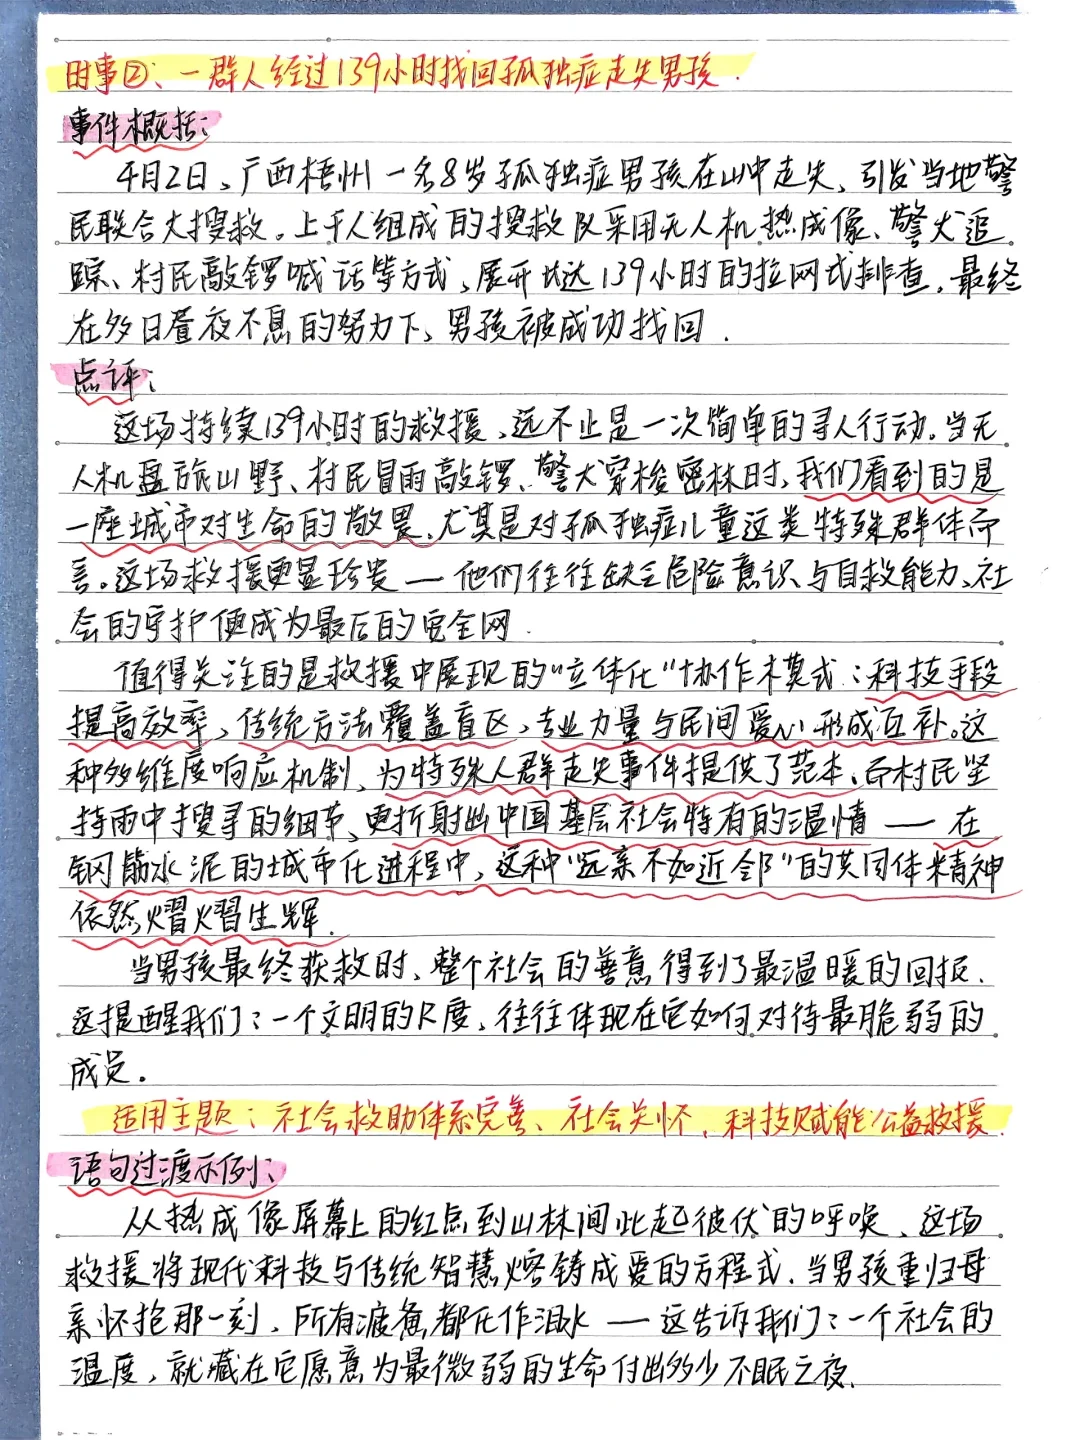 时事②、一群人经过139小时找回孤独症走失男孩.
事件概括:
4月2日、广西梧州一名8岁孤独症男孩在山中走失、引发当地警
民联合大搜救。上千人组成的搜救队采用无人机热成像、警犬追
踪、村民敲锣喊话等方式,展开长达139小时的拉网式排查.最终
在多日昼夜不息的努力下、男孩被成功找回.
点评:
这场持续139小时的救援、远不止是一次简单的寻人行动.当无
人机盘旋山野、村民冒雨敲锣、警犬穿梭密林时,我们看到的是
一座城市对生命的敬畏.尤其是对孤独症儿童这类特殊群体而
言。这场救援更显珍贵—他们往往缺乏危险意识与自救能力、社
会的守护便成为最后的安全网.
值得关注的是救援中展现的“立体化”协作模式:科技手段
提高效率,传统方法覆盖盲区,专业力量与民间爱心形成互补。这
种多维度响应机制、为特殊人群走失事件提供了范本、而村民坚
持雨中搜寻的细节、更折射出中国基层社会特有的温情—在
钢筋水泥的城市化进程中,这种“远亲不如近邻”的共同体精神
依然熠熠生辉.
当男孩最终获救时、整个社会的善意得到了最温暖的回报.
这提醒我们:一个文明的尺度、往往体现在它如何对待最脆弱的
成员。
适用主题:社会救助体系完善、社会关怀、科技赋能公益救援.
语句过渡示例:
从热成像屏幕上的红点到山林间此起彼伏的呼唤、这场
救援将现代科技与传统智慧熔铸成爱的方程式.当男孩重归母
亲怀抱那一刻、所有疲惫都化作泪水—这告诉我们:一个社会的
温度,就藏在它愿意为最微弱的生命付出多少不眠之夜.